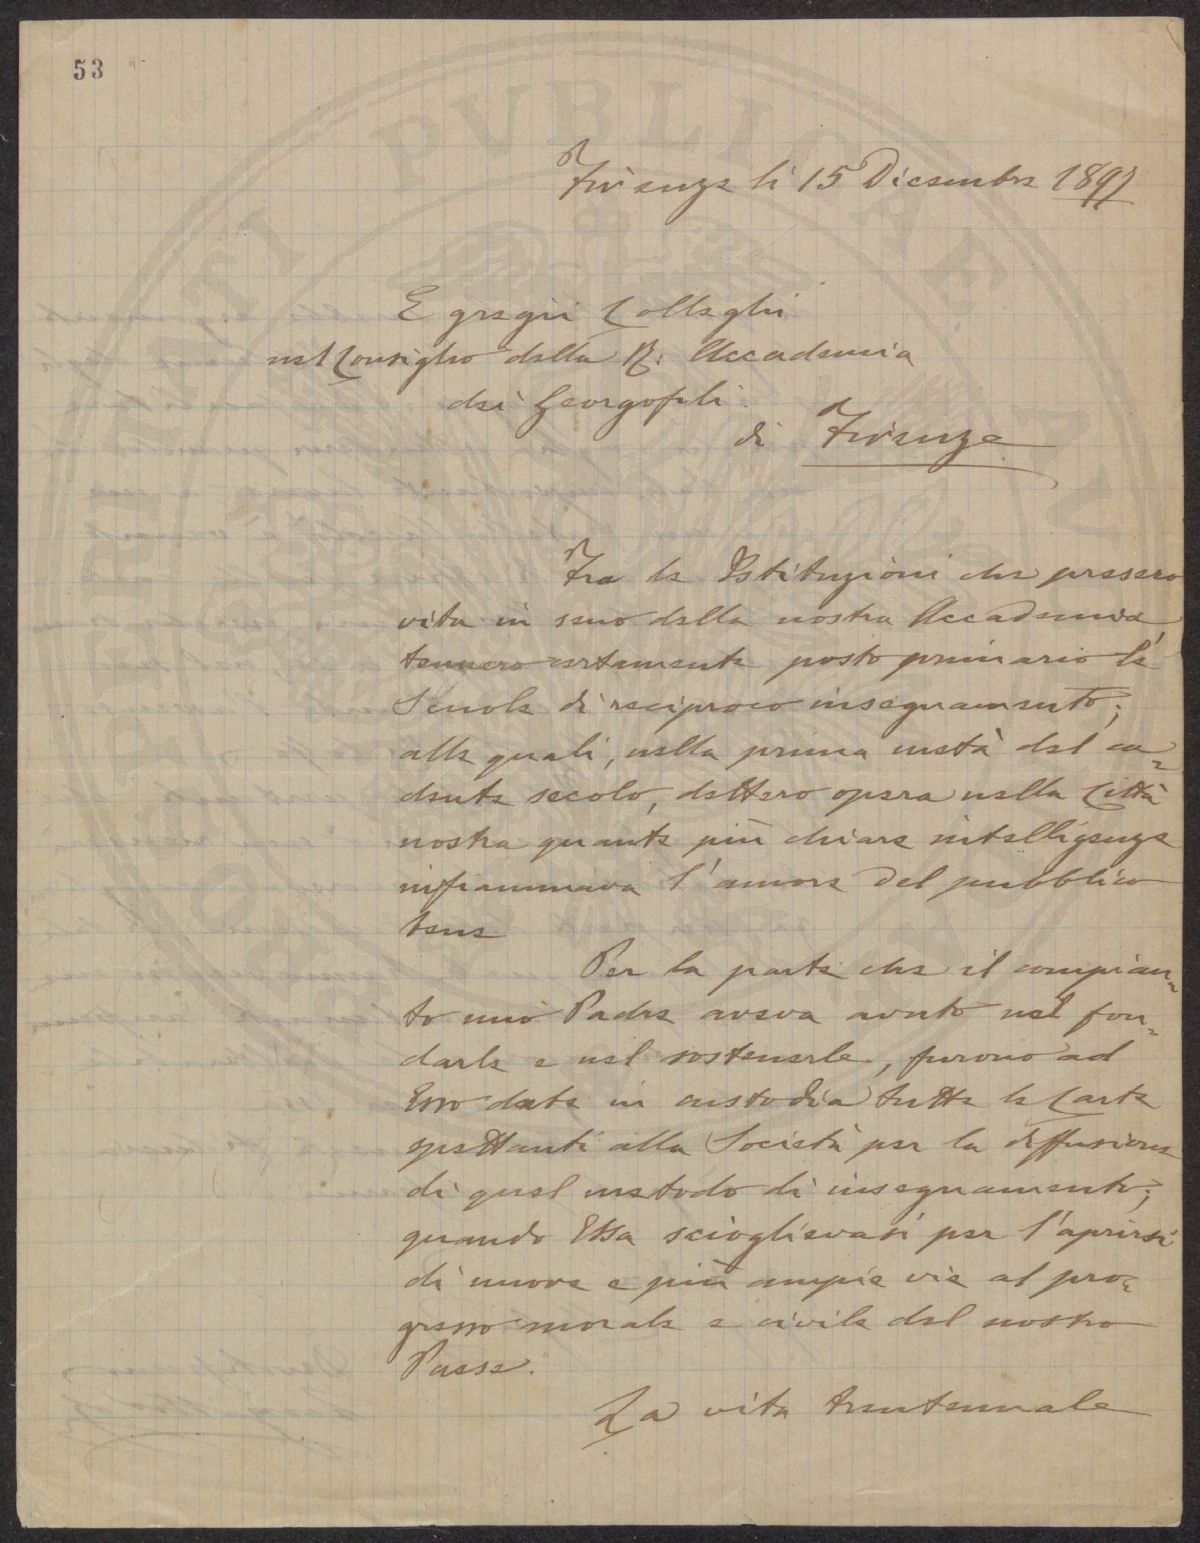 53
Firenze li 15 Dicembre 1897
Egregii Colleghi
nel Consiglio della R. Accademia
dei Georgofili
di Firenze
Fra le Istituzioni che presero
vita in seno della nostra Accademia,
tennero certamente posto primario le
Scuole di reciproco insegnamento;
alle quali, nella prima metà del ca=
dente secolo, dettero opera nella Città
nostra quante più chiare intelligenze
infiammava l'amore del pubblico
bene
Per la parte che il compian=
to mio Padre aveva avuto nel fon=
darle e nel sostenerle, furono ad
Esso date in custodia tutte le Carte
spettanti alla Società per la diffusione
di quel metodo di insegnamento;
quando Essa scioglievasi per l'aprirsi
di nuove e più ampie vie al pro=
gresso morale e civile del nostro
Paese.
La vita trentennale